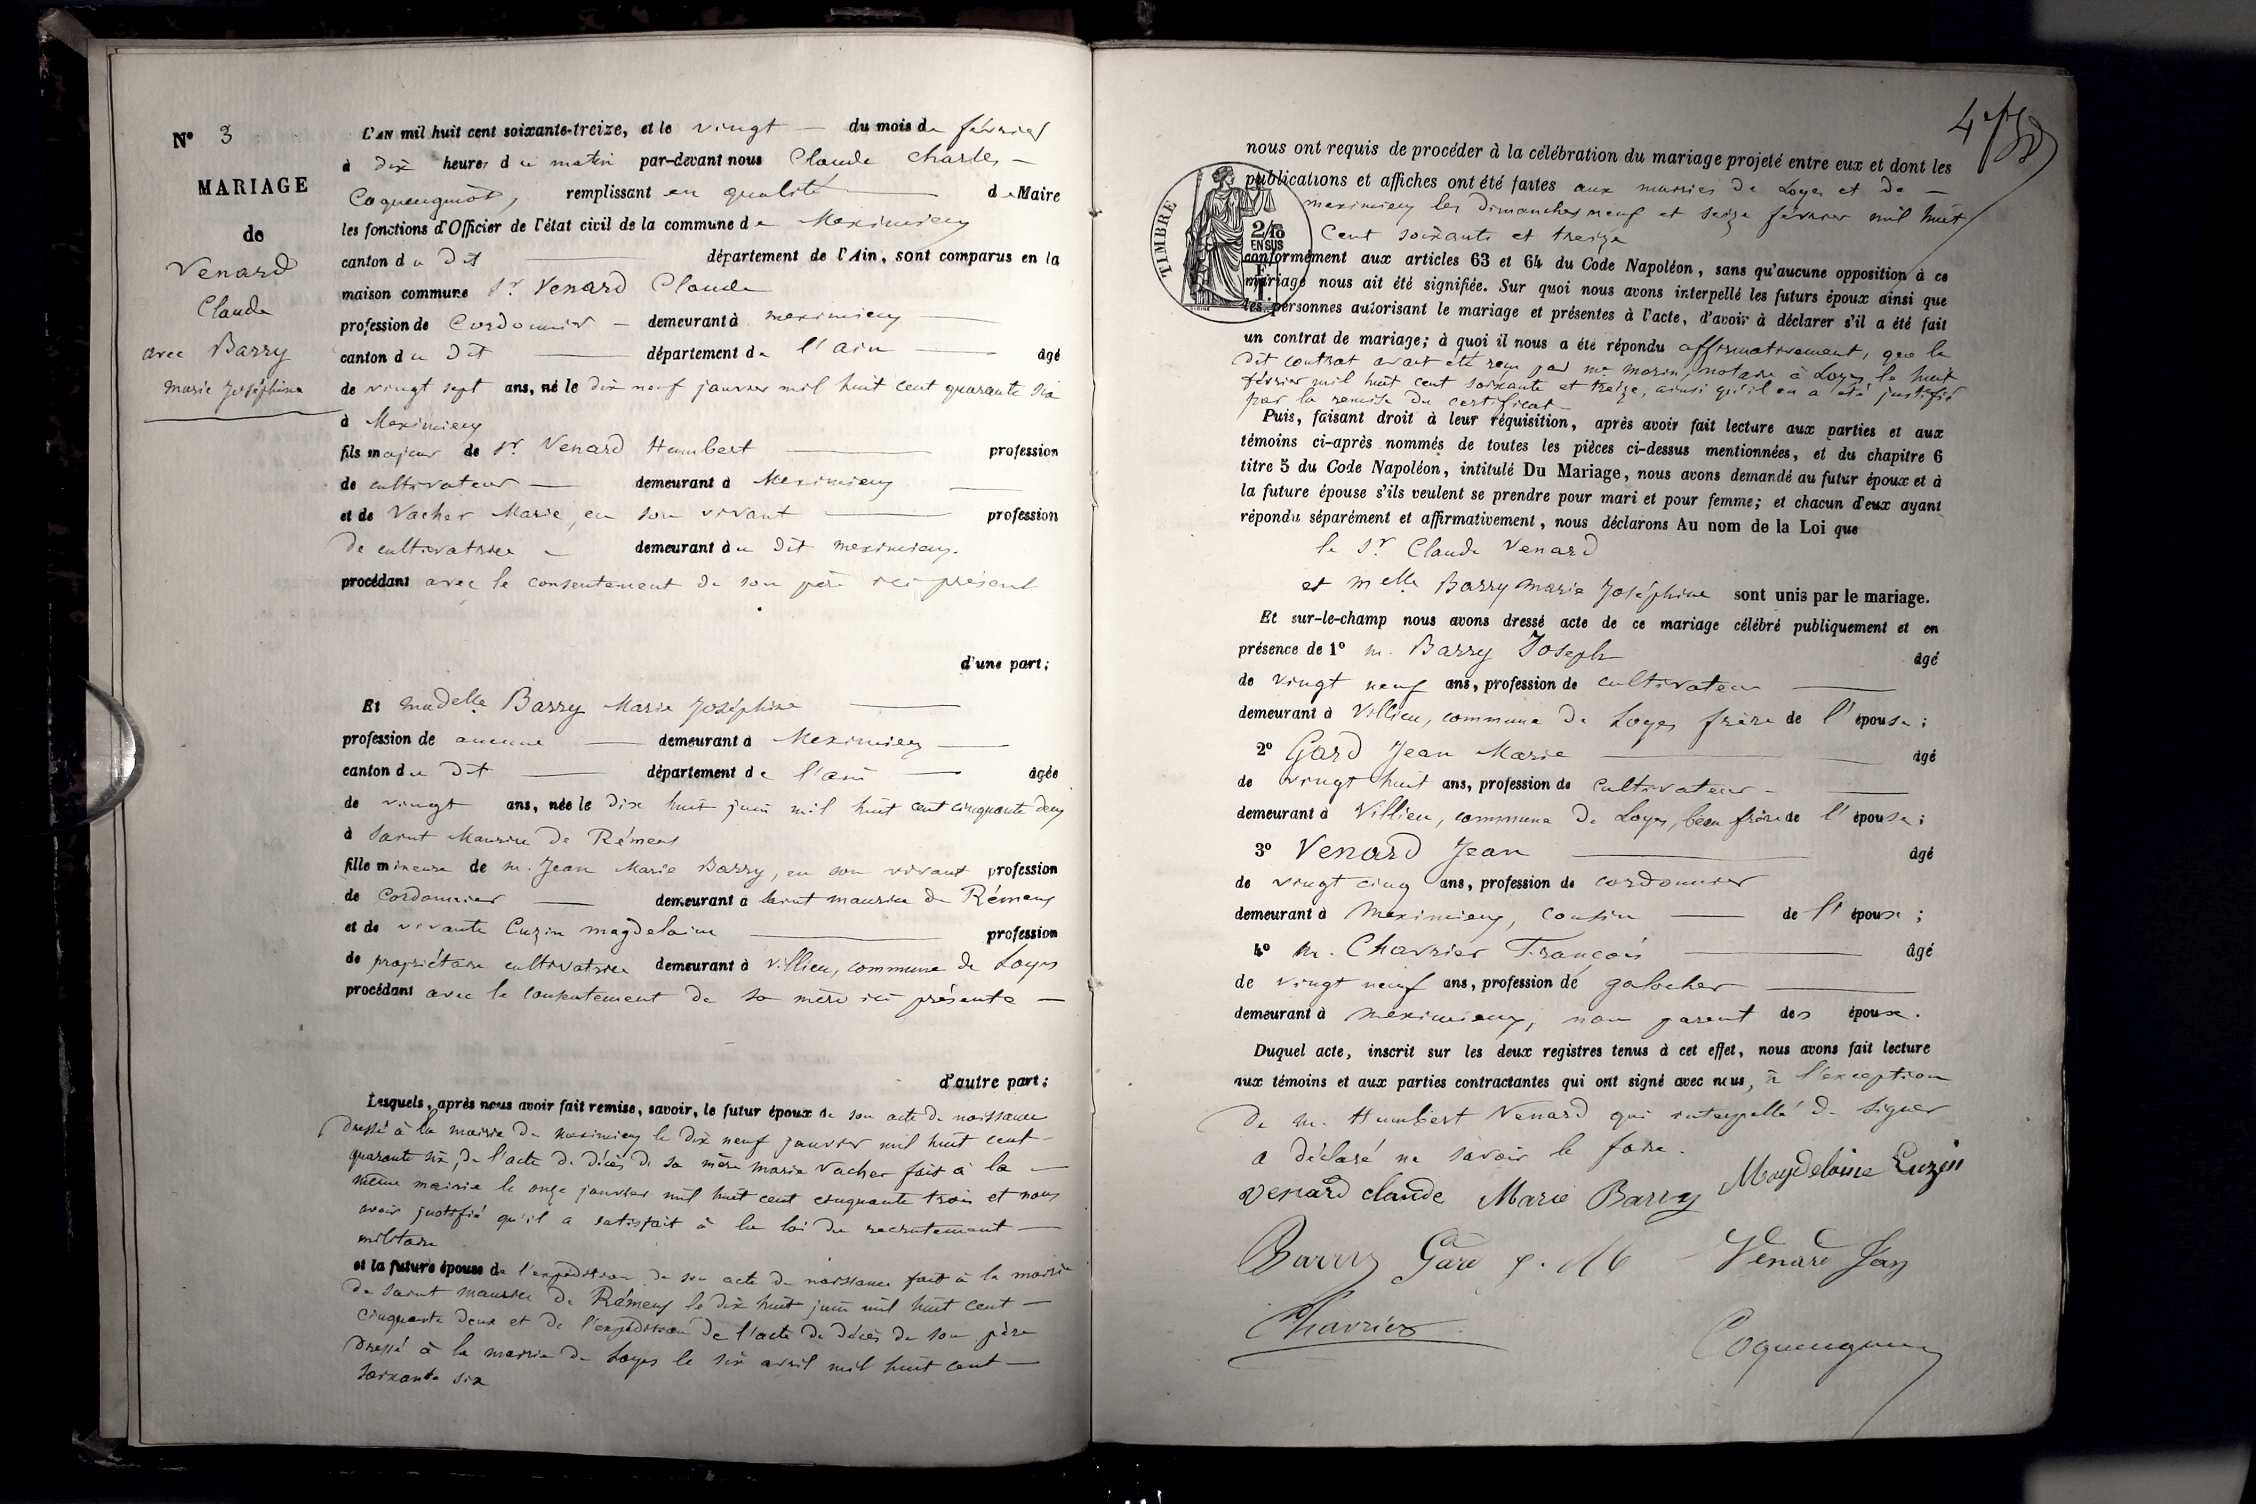 N° 3
MARIAGE
de
Venard
Claude
avec Barry
Marie Joséphine
L'AN mil huit cent soixante-treize, et le vingt — du mois de février
à dix heures du matin par-devant nous Claude Charles —
remplissant en qualité — de Maire
les fonctions d'Officier de l'état civil de la commune de Meximieux
canton du dit — département de l'Ain, sont comparus en la
maison commune Sr Venard Claude
profession de Cordonnier — demeurant à Meximieux —
canton du dit — département de l'ain — âgé
de vingt sept ans, né le dix neuf janvier mil huit cent quarante six
à Meximieux
fils majeur de Sr Venard Humbert — profession
de cultivateur — demeurant à Meximieux —
et de Vacher Marie, en son vivant — profession
de cultivatrice — demeurant au dit meximieux.
procédant avec le consentement de son père ici présent
d'une part;
Et madelle Barry Marie Joséphine —
profession de aucune — demeurant à Meximieux —
canton du dit — département de l'ain — âgée
de vingt ans, née le dix huit juin mil huit cent cinquante deux
à Saint Maurice de Rémens
fille mineure de m. Jean Marie Barry, en son vivant profession
de Cordonnier — demeurant à saint maurice de Rémens
et de vivante Cuzin magdelaine — profession
de propriétaire cultivatrice demeurant à Villieu, commune de Loyes
procédant avec le consentement de sa mère ici présente —
d'autre part;
Lesquels, après nous avoir fait remise, savoir, le futur époux de son acte de naissance
dressé à la mairie de meximieux le dix neuf janvier mil huit cent
quarante six, de l'acte de décès de sa mère Marie Vacher fait à la —
même mairie le onze janvier mil huit cent cinquante trois et nous
avoir justifié qu'il a satisfait à la loi du recrutement —
militaire
et la future épouse de l'expédition de son acte de naissance fait à la mairie
de saint maurice de Rémens le dix huit juin mil huit cent —
cinquante deux et de l'expédition de l'acte de décès de son père
dressé à la mairie de Loyes le six avril mil huit cent —
soixante six
nous ont requis de procéder à la célébration du mariage projeté entre eux et dont les
publications et affiches ont été faites aux mairies de Loyes et de —
meximieux les dimanches neuf et seize février mil huit
Cent soixante et treize
TIMBRE
2/10
EN SUS
conformément aux articles 63 et 64 du Code Napoléon, sans qu'aucune opposition à ce
mariage nous ait été signifiée. Sur quoi nous avons interpellé les futurs époux ainsi que
les personnes autorisant le mariage et présentes à l'acte, d'avoir à déclarer s'il a été fait
un contrat de mariage; à quoi il nous a été répondu affirmativement, que le
dit contrat avait été reçu par me morin, notaire à Loyes, le huit
février mil huit cent soixante et treize, ainsi qu'il en a été justifié
par la remise du certificat
Puis, faisant droit à leur réquisition, après avoir fait lecture aux parties et aux
témoins ci-après nommés de toutes les pièces ci-dessus mentionnées, et du chapitre 6
titre 5 du Code Napoléon, intitulé Du Mariage, nous avons demandé au futur époux et à
la future épouse s'ils veulent se prendre pour mari et pour femme; et chacun d'eux ayant
répondu séparément et affirmativement, nous déclarons Au nom de la Loi que
le Sr Claude Venard
et melle Barry marie Joséphine sont unis par le mariage.
Et sur-le-champ nous avons dressé acte de ce mariage célébré publiquement et en
présence de 1° m. Barry Joseph âgé
de vingt neuf ans, profession de cultivateur —
demeurant à Villieu, commune de Loyes frère de l'épouse;
2° Gard Jean Marie — âgé
de vingt huit ans, profession de cultivateur —
demeurant à Villieu, commune de Loyes, beau frère de l'épouse;
3° Venard Jean — âgé
de vingt cinq ans, profession de cordonnier
demeurant à Meximieux, cousin — de l'époux;
4° m. Chavrier François — âgé
de vingt neuf ans, profession de galocher —
demeurant à Meximieux, non parent des époux.
Duquel acte, inscrit sur les deux registres tenus à cet effet, nous avons fait lecture
aux témoins et aux parties contractantes qui ont signé avec nous, à l'exception
de m. Humbert Venard qui interpellé de signer
a déclaré ne savoir le faire.
venard claude Marie Barry Magdeloine Cuzin
Barry Gard J. M Venard Jean
Chavrier